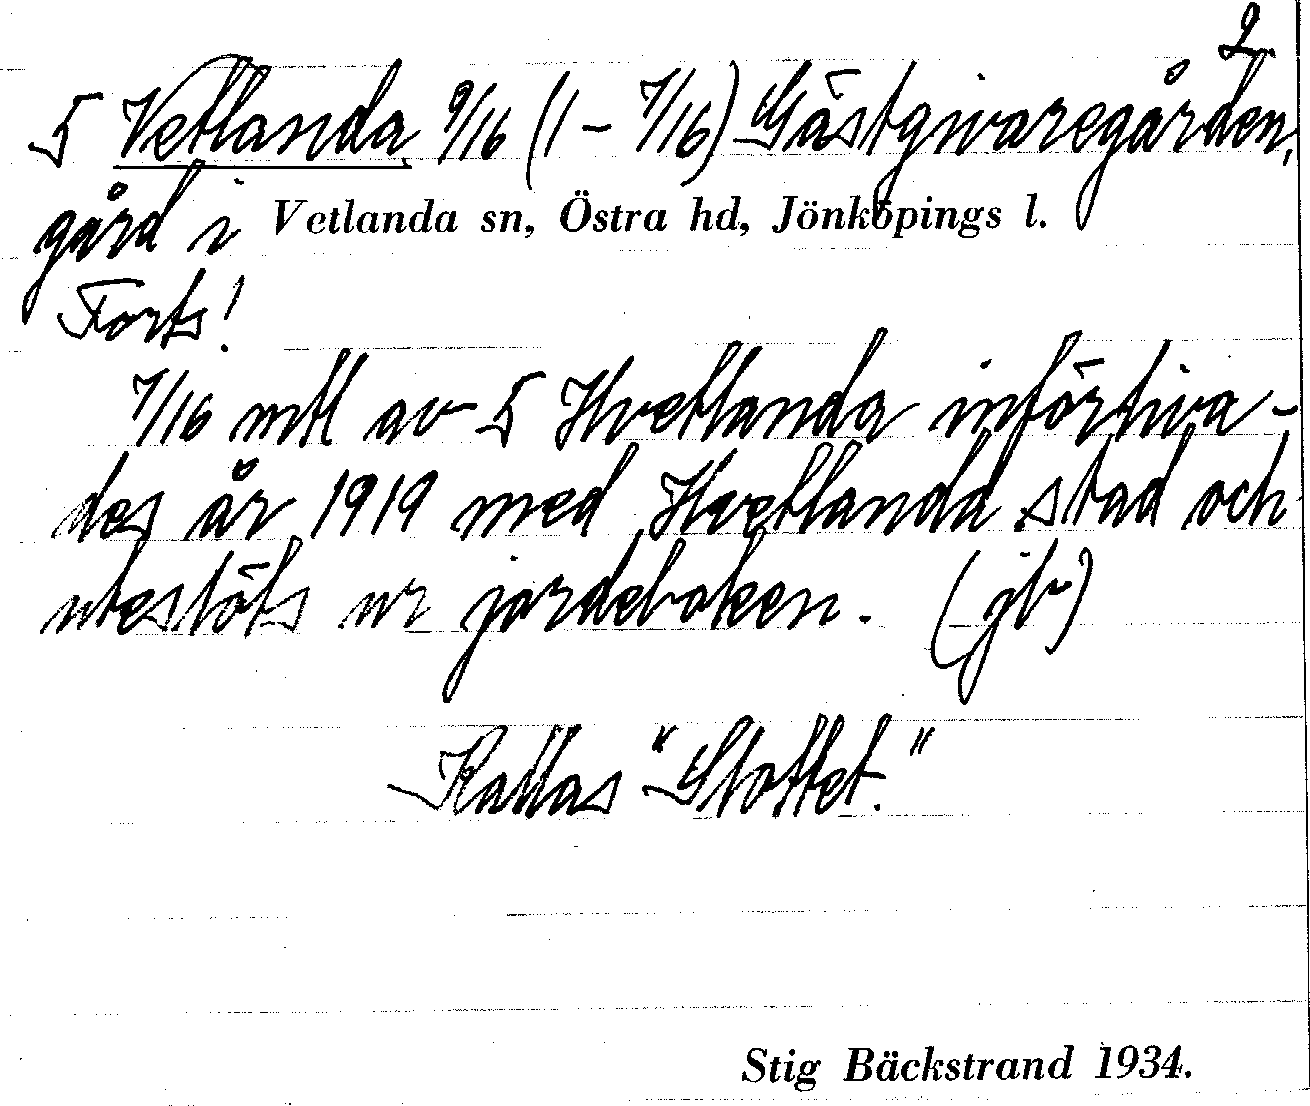 2.
5 Vetlanda 9/16 (1 - 7/16) Gästgivaregården,
gård i Vetlanda sn, Östra hd, Jönköpings l.
Forts!
7/16 mtl av 5 Hvetlanda införliva-
des år 1919 med Hvetlanda stad och
utestöts ur jordeboken. (jb)
Kallas "Slottet."
Stig Bäckstrand 1934.